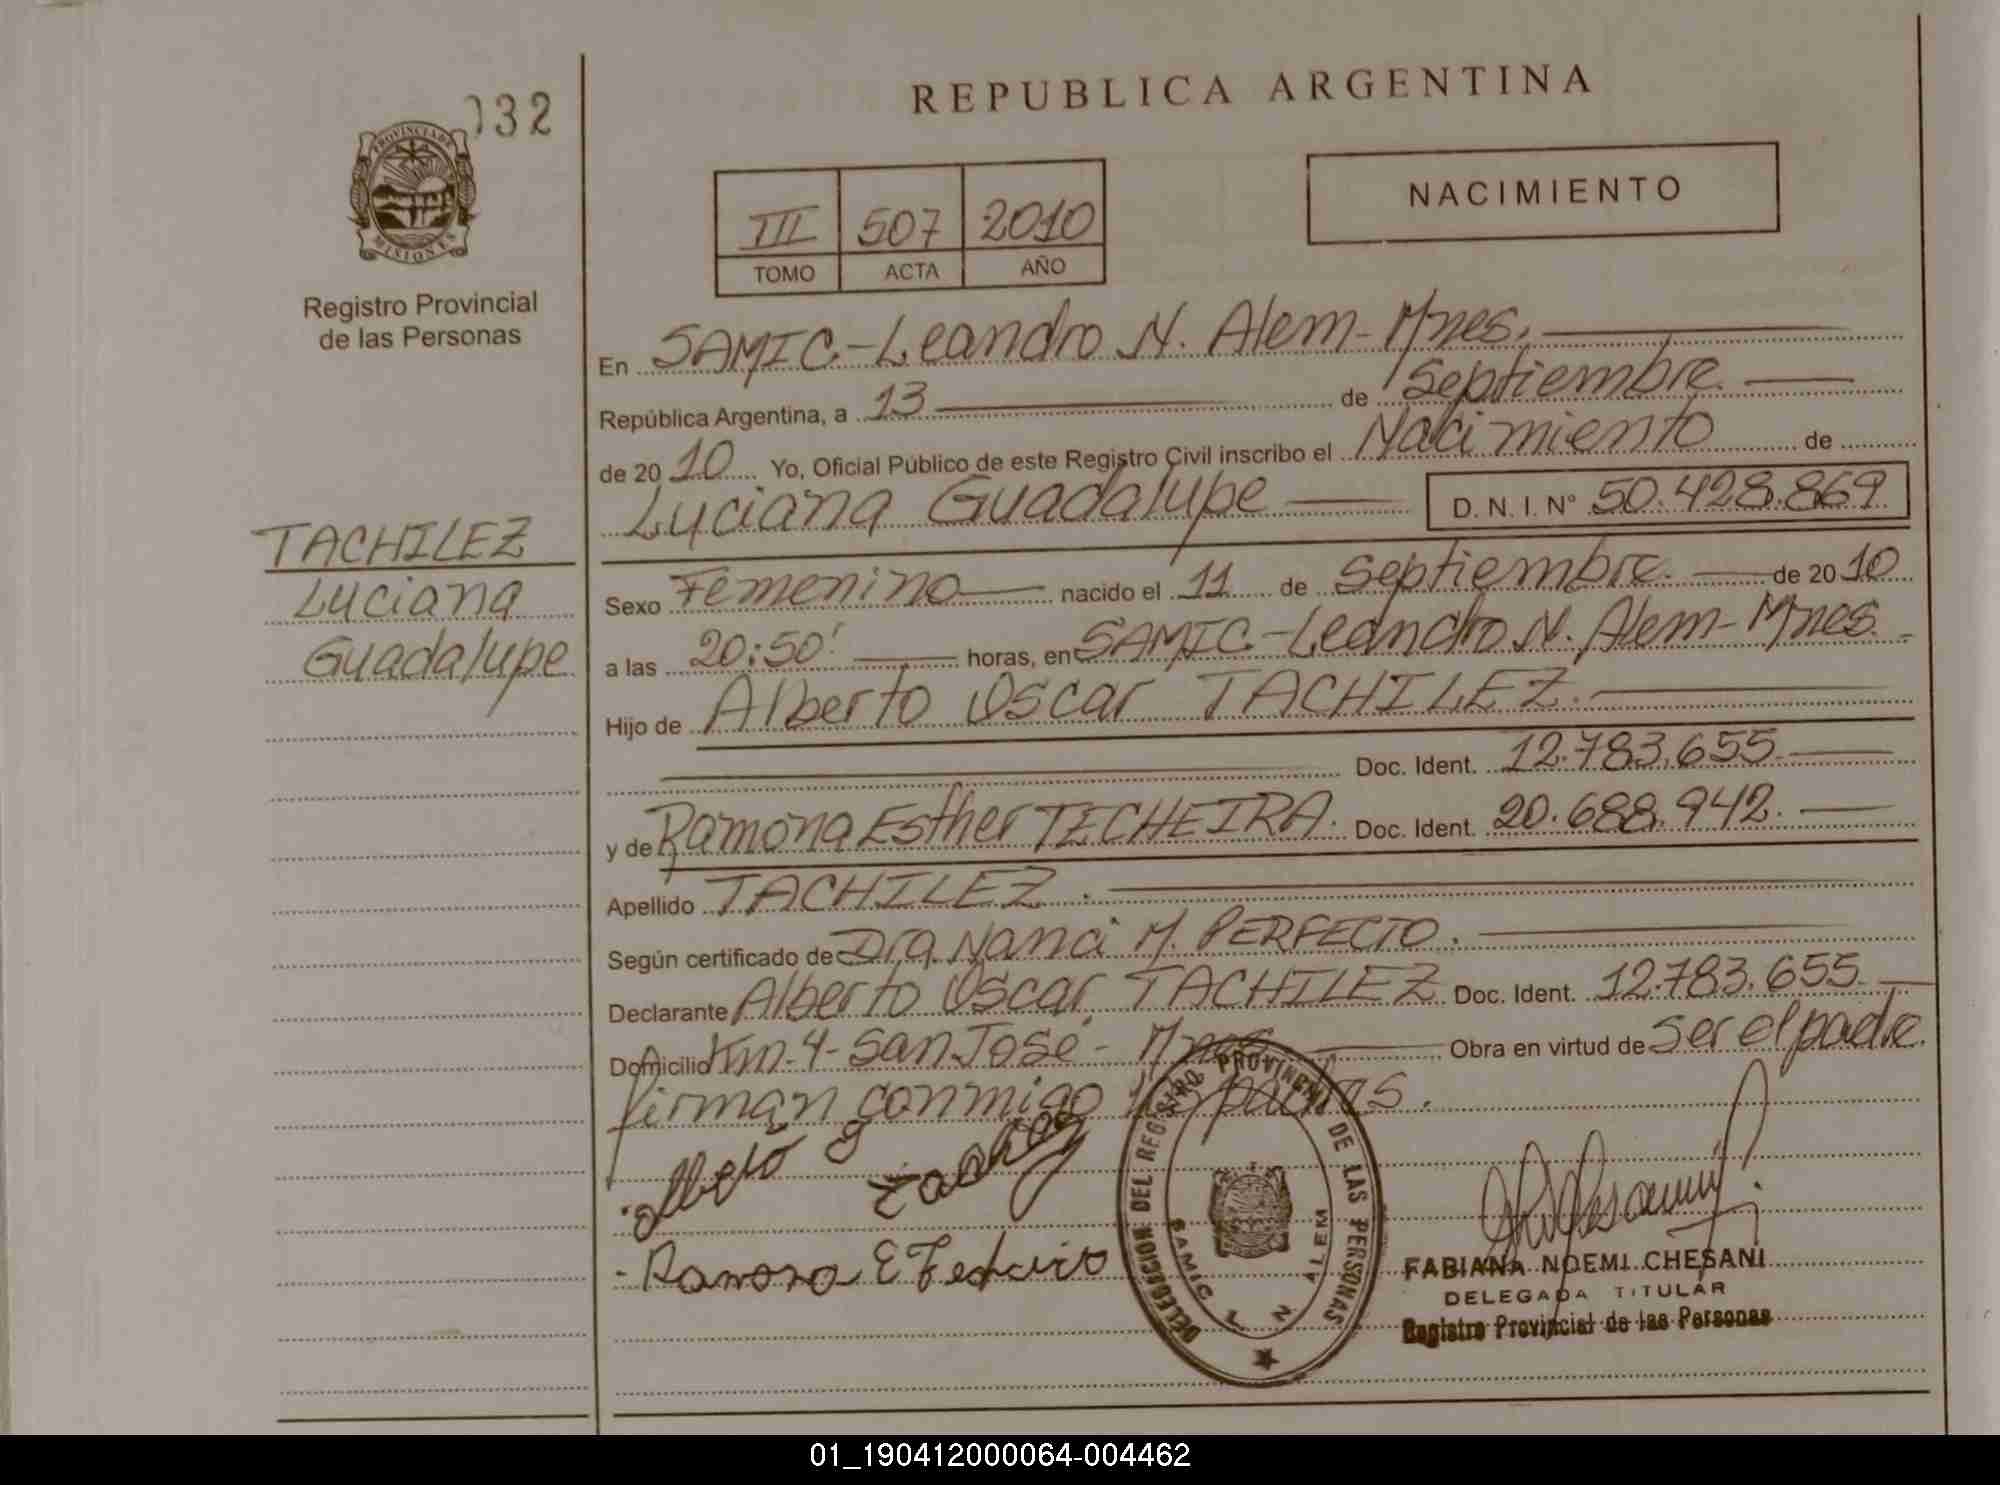 032
PROVINCIA DE
MISIONES
Registro Provincial
de las Personas
TACHILEZ
Luciana
Guadalupe
REPUBLICA ARGENTINA
III 507 2010
TOMO ACTA AÑO
NACIMIENTO
En SAMIC.-Leandro N. Alem-Mnes.
República Argentina, a 13 de Septiembre.
de 2010 Yo, Oficial Público de este Registro Civil inscribo el Nacimiento de
Luciana Guadalupe D. N. I. N° 50.428.869
Sexo Femenino nacido el 11 de Septiembre. de 2010
a las 20:50' horas, en SAMIC-Leandro N. Alem-Mnes.
Hijo de Alberto Oscar TACHILEZ.
Doc. Ident. 12.783.655
y de Ramona Esther TECHEIRA. Doc. Ident. 20.688.942.
Apellido TACHILEZ.
Según certificado de Dra. Nanci M. PERFECTO.
Declarante Alberto Oscar TACHILEZ Doc. Ident. 12.783.655
Domicilio Km-4-San José- Mnes Obra en virtud de ser el padre.
firman conmigo los padres.
DELEGACION DEL REGISTRO PROVINCIAL DE LAS PERSONAS
SAMIC L N ALEM
Ramona E
FABIANA NOEMI CHESANI
DELEGADA TITULAR
Registro Provincial de las Personas
01_190412000064-004462